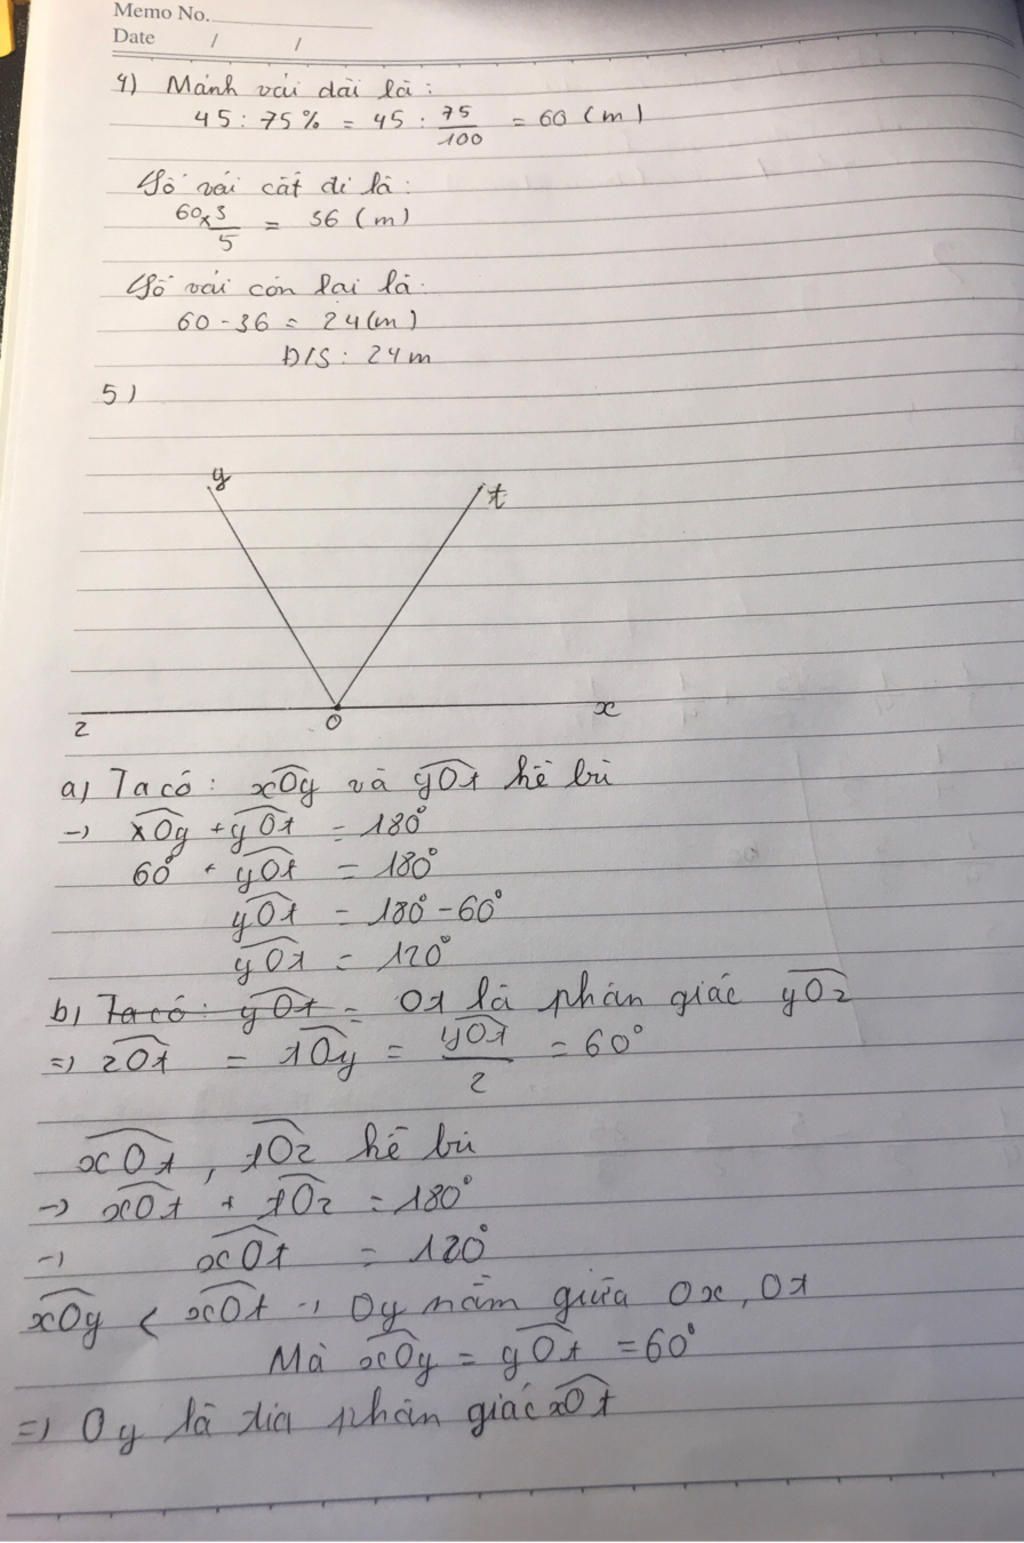 Memo No.
Date / /
4) Mảnh vải dài là :
45 : 75% = 45 : 75/100 = 60 (m)
Số vải cắt đi là :
60 x 3/5 = 36 (m)
Số vải còn lại là :
60 - 36 = 24 (m)
Đ/S : 24 m
5)
y
t
z
O
x
a) Ta có : xOy và yOt kề bù
→ xOy + yOt = 180°
60° + yOt = 180°
yOt = 180° - 60°
yOt = 120°
b) Ta có : yOt = Ot là phân giác yOz
=> zOt = tOy = yOt/2 = 60°
xOt , tOz kề bù
→ xOt + tOz = 180°
→ xOt = 120°
xOy < xOt → Oy nằm giữa Ox, Ot
Mà xOy = yOt = 60°
=> Oy là tia phân giác xOt